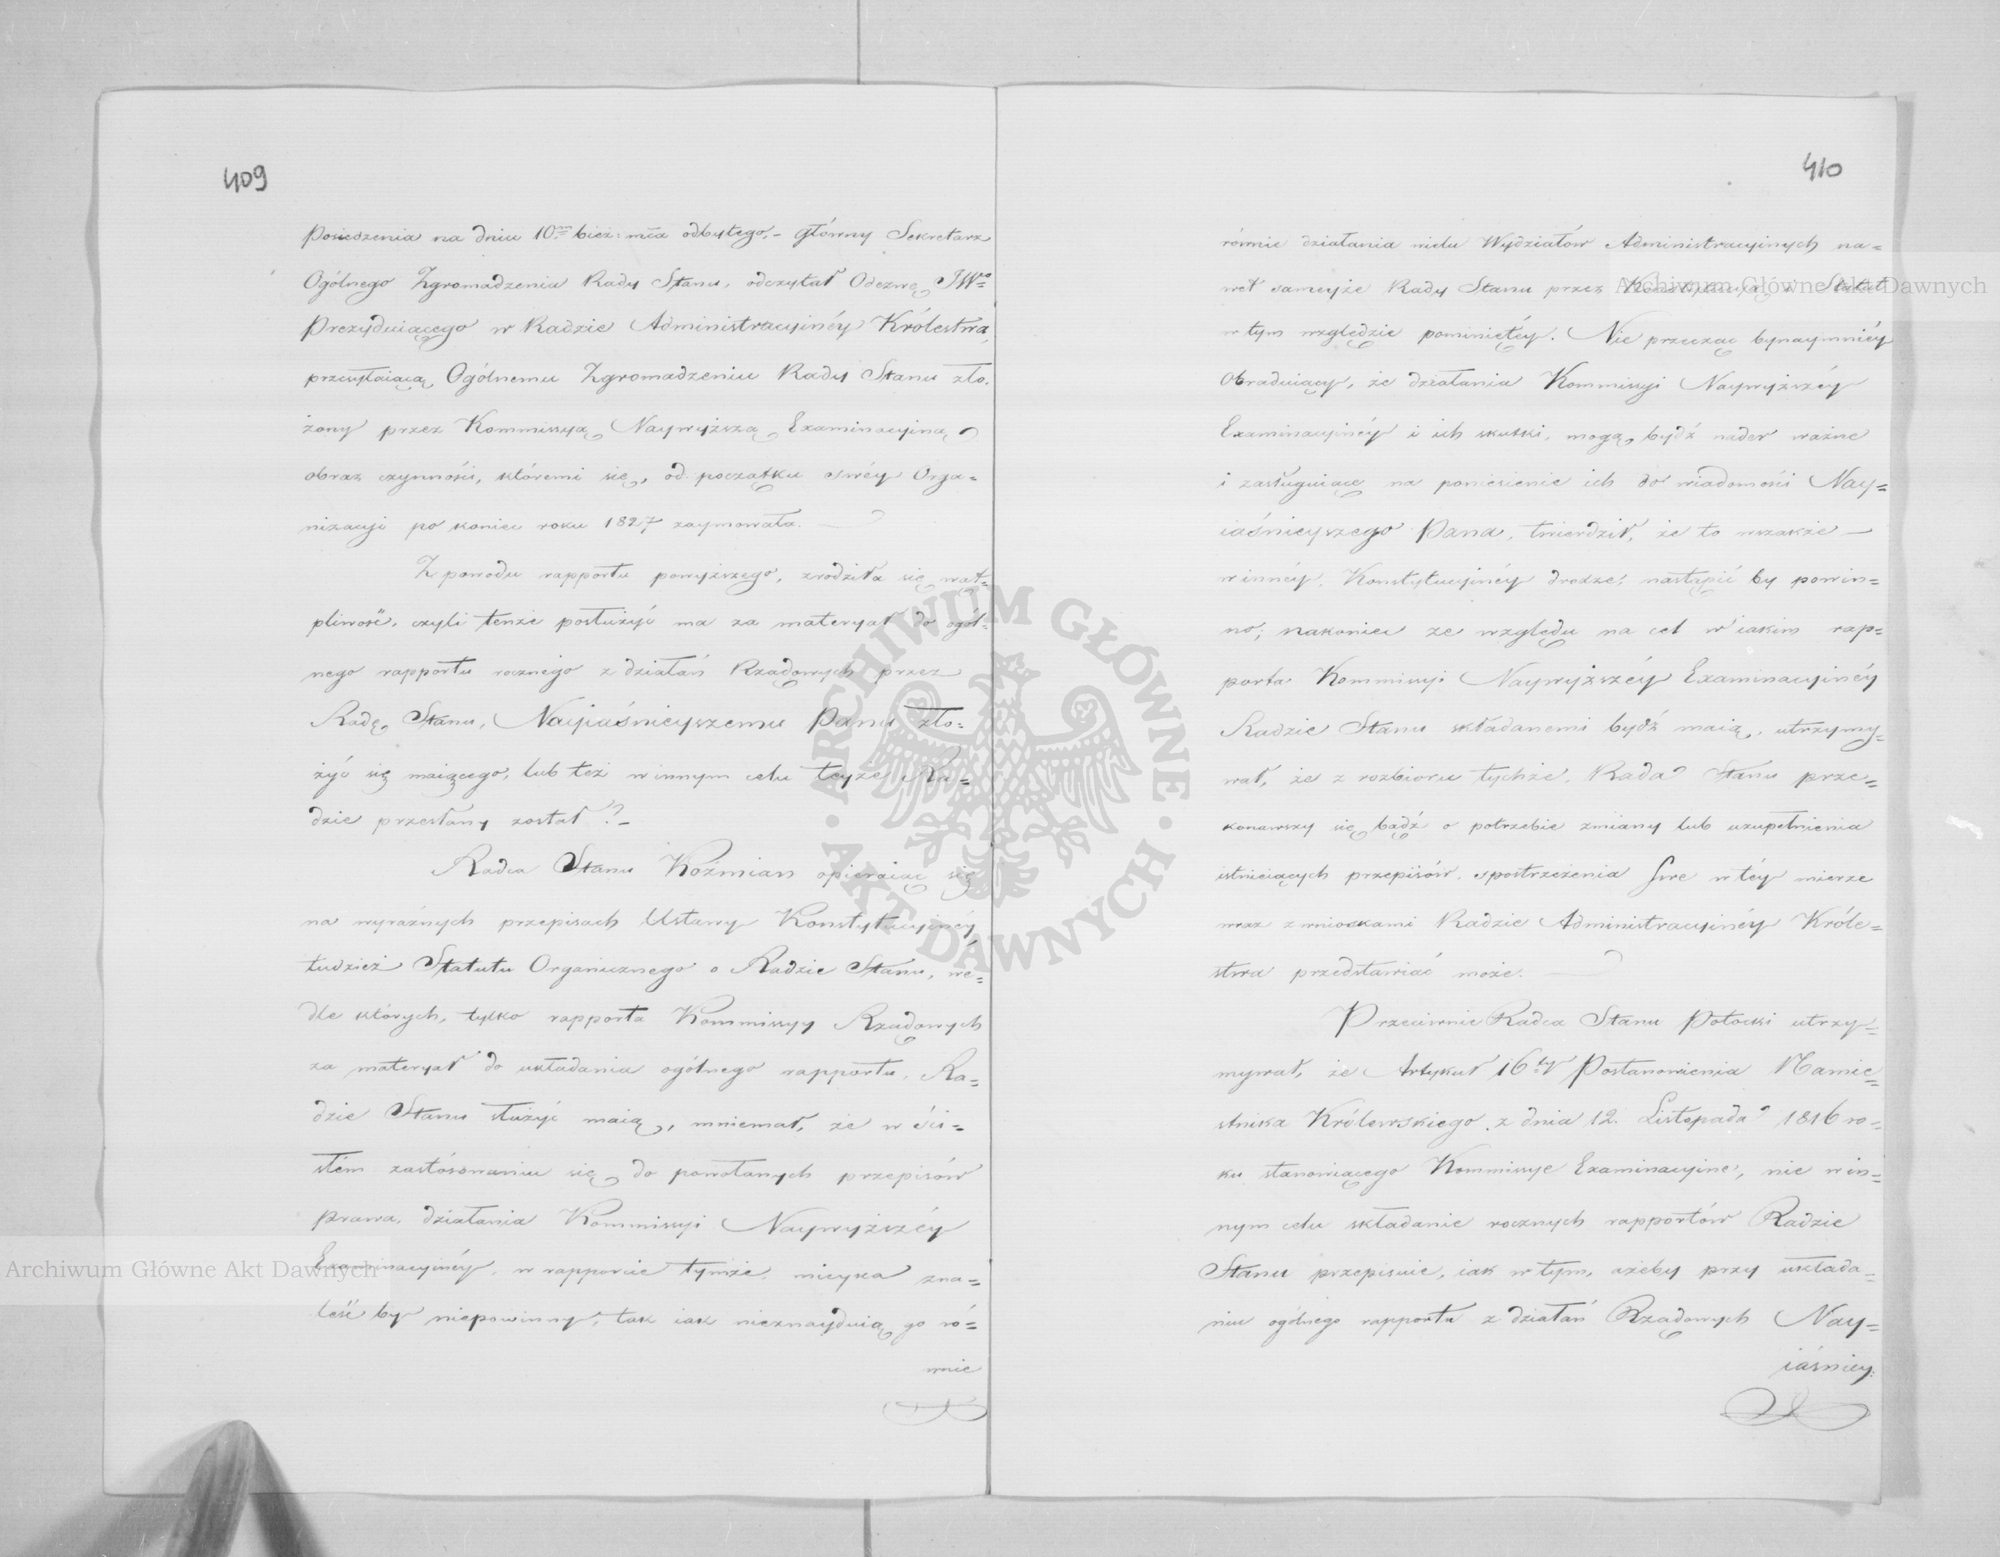 409
Posiedzenia na dniu 10m bież: mca odbytego, - Główny Sekretarz
Ogólnego Zgromadzenia Rady Stanu, odczytał Odezwę JWo
Prezyduiącego w Radzie Administracyinéy Królestwa,
przesyłaiącą Ogólnemu Zgromadzeniu Rady Stanu zło-
żony przez Kommissyą Naywyższą Examinacyiną
obraz czynności, któremi się, od początku swéy Orga-
nizacyi po koniec roku 1827 zaymowała. —
Z powodu rapportu powyższego, zrodziła się wąt-
pliwość, czyli tenże posłużyć ma za materyał do ogól-
nego rapportu rocznego z działań Rządowych przez
Radę Stanu, Nayiaśnieyszemu Panu zło=
żyć się maiącego, lub też w innym celu teyże Ra=
dzie przesłany został? -
Radca Stanu Koźmian opieraiąc się
na wyraźnych przepisach Ustawy Konstytucyinéy
tudzież Statutu Organicznego o Radzie Stanu, we=
dle których, tylko rapporta Kommissyy Rządowych
za materyał do układania ogólnego rapportu, Ra=
dzie Stanu służyć maią, mniemał, że w ści=
słém zastósowaniu się do powołanych przepisów
prawa, działania Kommissyi Naywyższéy
Examinacyinéy, w rapporcie tymże, mieysca zna=
leść by niepowinny, tak iak nieznayduią go ró=
wnie
410
równie działania wielu Wydziałów Administracyinych na=
wet sameyże Rady Stanu przez Konstytucyą i Statut
w tym względzie pominiętéy. Nie przecząc bynaymniéy
Obraduiący, że działania Kommissyi Naywyższéy
Examinacyinéy i ich skutki, mogą bydź nader ważne
i zasługuiące na poniesienie ich do wiadomości Nay=
iaśnieyszego Pana, twierdził, że to wszakże —
w innéy, Konstytucyinéy drodze, nastąpić by powin=
no; nakoniec ze względu na cel w iakim rap=
porta Kommissyi Naywyższéy Examinacyinéy
Radzie Stanu składanemi bydź maią, utrzymy=
wał, że z rozbioru tychże, Rada Stanu prze=
konawszy się bądź o potrzebie zmiany lub uzupełnienia
istnieiących przepisów, spostrzeżenia swe w téy mierze
wraz z wnioskami Radzie Administracyinéy Króle=
stwa przedstawiać może. —
Przeciwnie Radca Stanu Potocki utrzy=
mywał, że Artykuł 16ty Postanowienia Namie=
stnika Królewskiego z dnia 12. Listopada 1816 ro=
ku stanowiącego Kommissye Examinacyine, nie w in=
nym celu składanie rocznych rapportów Radzie
Stanu przepisuie, iak w tym, ażeby przy układa=
niu ogólnego rapportu z działań Rządowych Nay=
iaśniey:
Archiwum Główne Akt Dawnych
Archiwum Główne Akt Dawnych
ARCHIWUM GŁÓWNE · AKT DAWNYCH ·